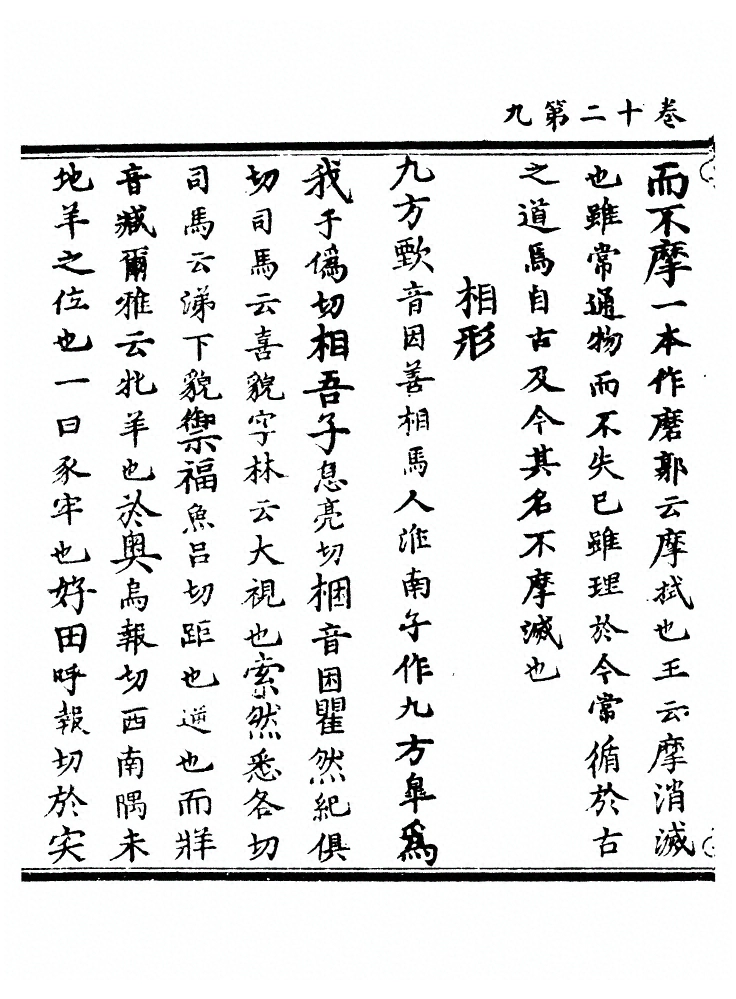 卷十二第九
而不摩一本作磨郭云摩拭也王云摩消滅
也雖常通物而不失已雖理於今常循於古
之道焉自古及今其名不摩滅也
相形
九方歅音因善相馬人淮南子作九方皐為
我于僞切相吾子息亮切梱音困瞿然紀俱
切司馬云喜貌字林云大視也索然悉各切
司馬云涕下貌禦福魚呂切距也逆也而牂
音臧爾雅云牝羊也於奥烏報切西南隅未
地羊之位也一曰豕牢也好田呼報切於宎